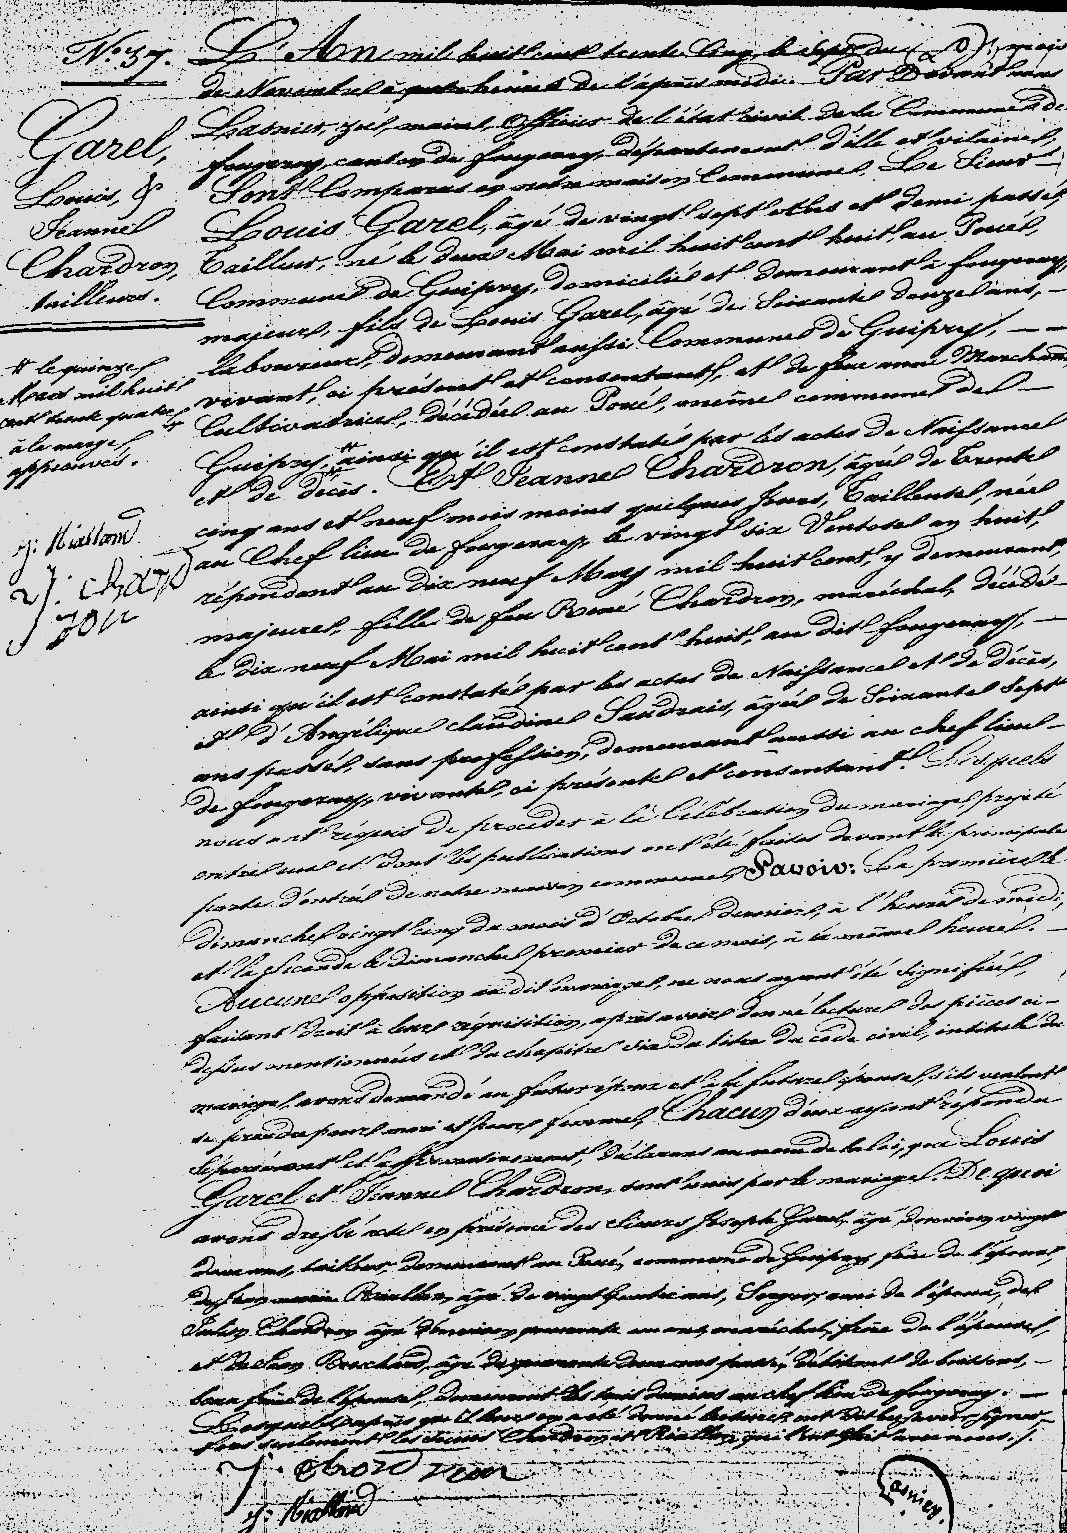 N.° 37.
Garel,
Louis, &
Jeanne
Chardron,
tailleurs.
# le quinze
Mars mil huit
cent trente quatre
à la marge
approuvés.
J: Rialland
J: chard
ron
L'An mil huit cent trente Cinq le sept du mois
de Novembre à quatre heures de l'après midi. Par Devant nous
Lasnier, maire, officier de l'état civil de la Commune de
fougeray, canton de fougeray, département d'ille et vilaine,
Sont Comparus en notre maison Commune, Le Sieur
Louis Garel, âgé de vingt sept ans et demi passés,
Tailleur, né le deux Mai mil huit cent huit, au Poué,
Commune de Guipry, domicilié et demeurant à fougeray,
majeur, fils de Louis Garel, âgé de Soixante douze ans,
laboureur, demeurant aussi Commune de Guipry,
vivant, ci présent et consentant, et de feue anne Marchand
Cultivatrice, décédée au Poué, même commune de
Guipry # ainsi qu'il est constaté par les actes de Naissance
et de décès. Et Jeanne Chardron, âgée de Trente
cinq ans et neuf mois moins quelques jours, Tailleuse, née
au Chef lieu de fougeray, le vingt six Ventose an huit,
répondant au dix neuf Mars mil huit cent, y demeurant,
majeure, fille de feu René Chardron, maréchal, décédé
le dix neuf Mai mil huit cent huit, au dit fougeray,
ainsi qu'il est constaté par les actes de Naissance et de décès,
et d'Angélique claudine Saudrais, âgée de Soixante Sept
ans passés, sans profession, demeurant aussi au chef lieu
de fougeray, vivante, ci présente et consentant. Lesquels
nous ont réquis de procéder à la Célébration du mariage projeté
entre eux et dont les publications ont été faites devant la principale
porte d'entrée de notre maison commune, Savoir: La première le
dimanche vingt cinq du mois d'Octobre dernier, à l'heure de midi,
et la seconde le dimanche premier de ce mois, à la même heure.
Aucune opposition au dit mariage, ne nous ayant été signifiée,
faisant droit à leur réquisition, après avoir donné lecture des pièces ci-
dessus mentionnées et du chapitre six du titre du code civil, intitulé du
mariage, avons demandé au futur époux et à la future épouse, s'ils veulent
se prendre pour mari et pour femme, Chacun d'eux ayant répondu
séparément et affirmativement, déclarons au nom de la loi, que Louis
Garel et Jeanne Chardron, sont unis par le mariage. De quoi
avons dressé acte en présence des sieurs Joseph Garel, âgé d'environ vingt
deux ans, tailleur, demeurant au Poué, commune de Guipry, frère de l'époux,
de Jean marie Riallan, âgé de vingt ans, ami de l'époux, de
Julien Chardron âgé d'environ quarante un ans, maréchal, frère de l'épouse,
et de Jean Bouchaud, âgé de quarante deux ans passés, débitant de boissons,
beau frère de l'épouse, demeurant les trois derniers au chef lieu de fougeray.
Lesquels après que il leur en a été donné lecture, ont dit ne savoir signer,
fors seulement les sieurs Chardron et Riallan, qui l'ont fait avec nous./.
J: chard ron
J: Rialland
Lasnier.